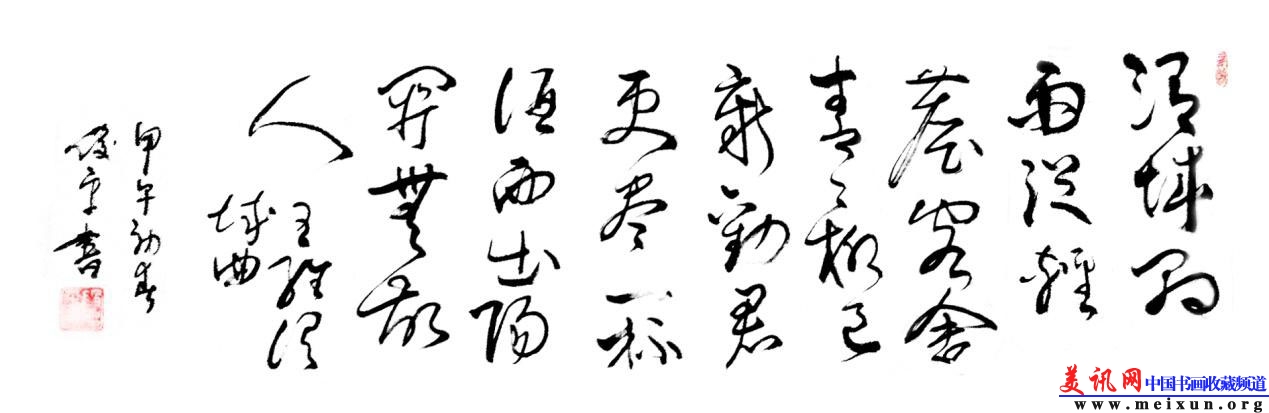 渭城朝
雨浥輕
塵客舍
青々柳色
新勸君
更盡一杯
酒西出陽
關無故
人
王維渭
城曲
甲午初春
書
美讯网中国书画收藏频道
www.meixun.org